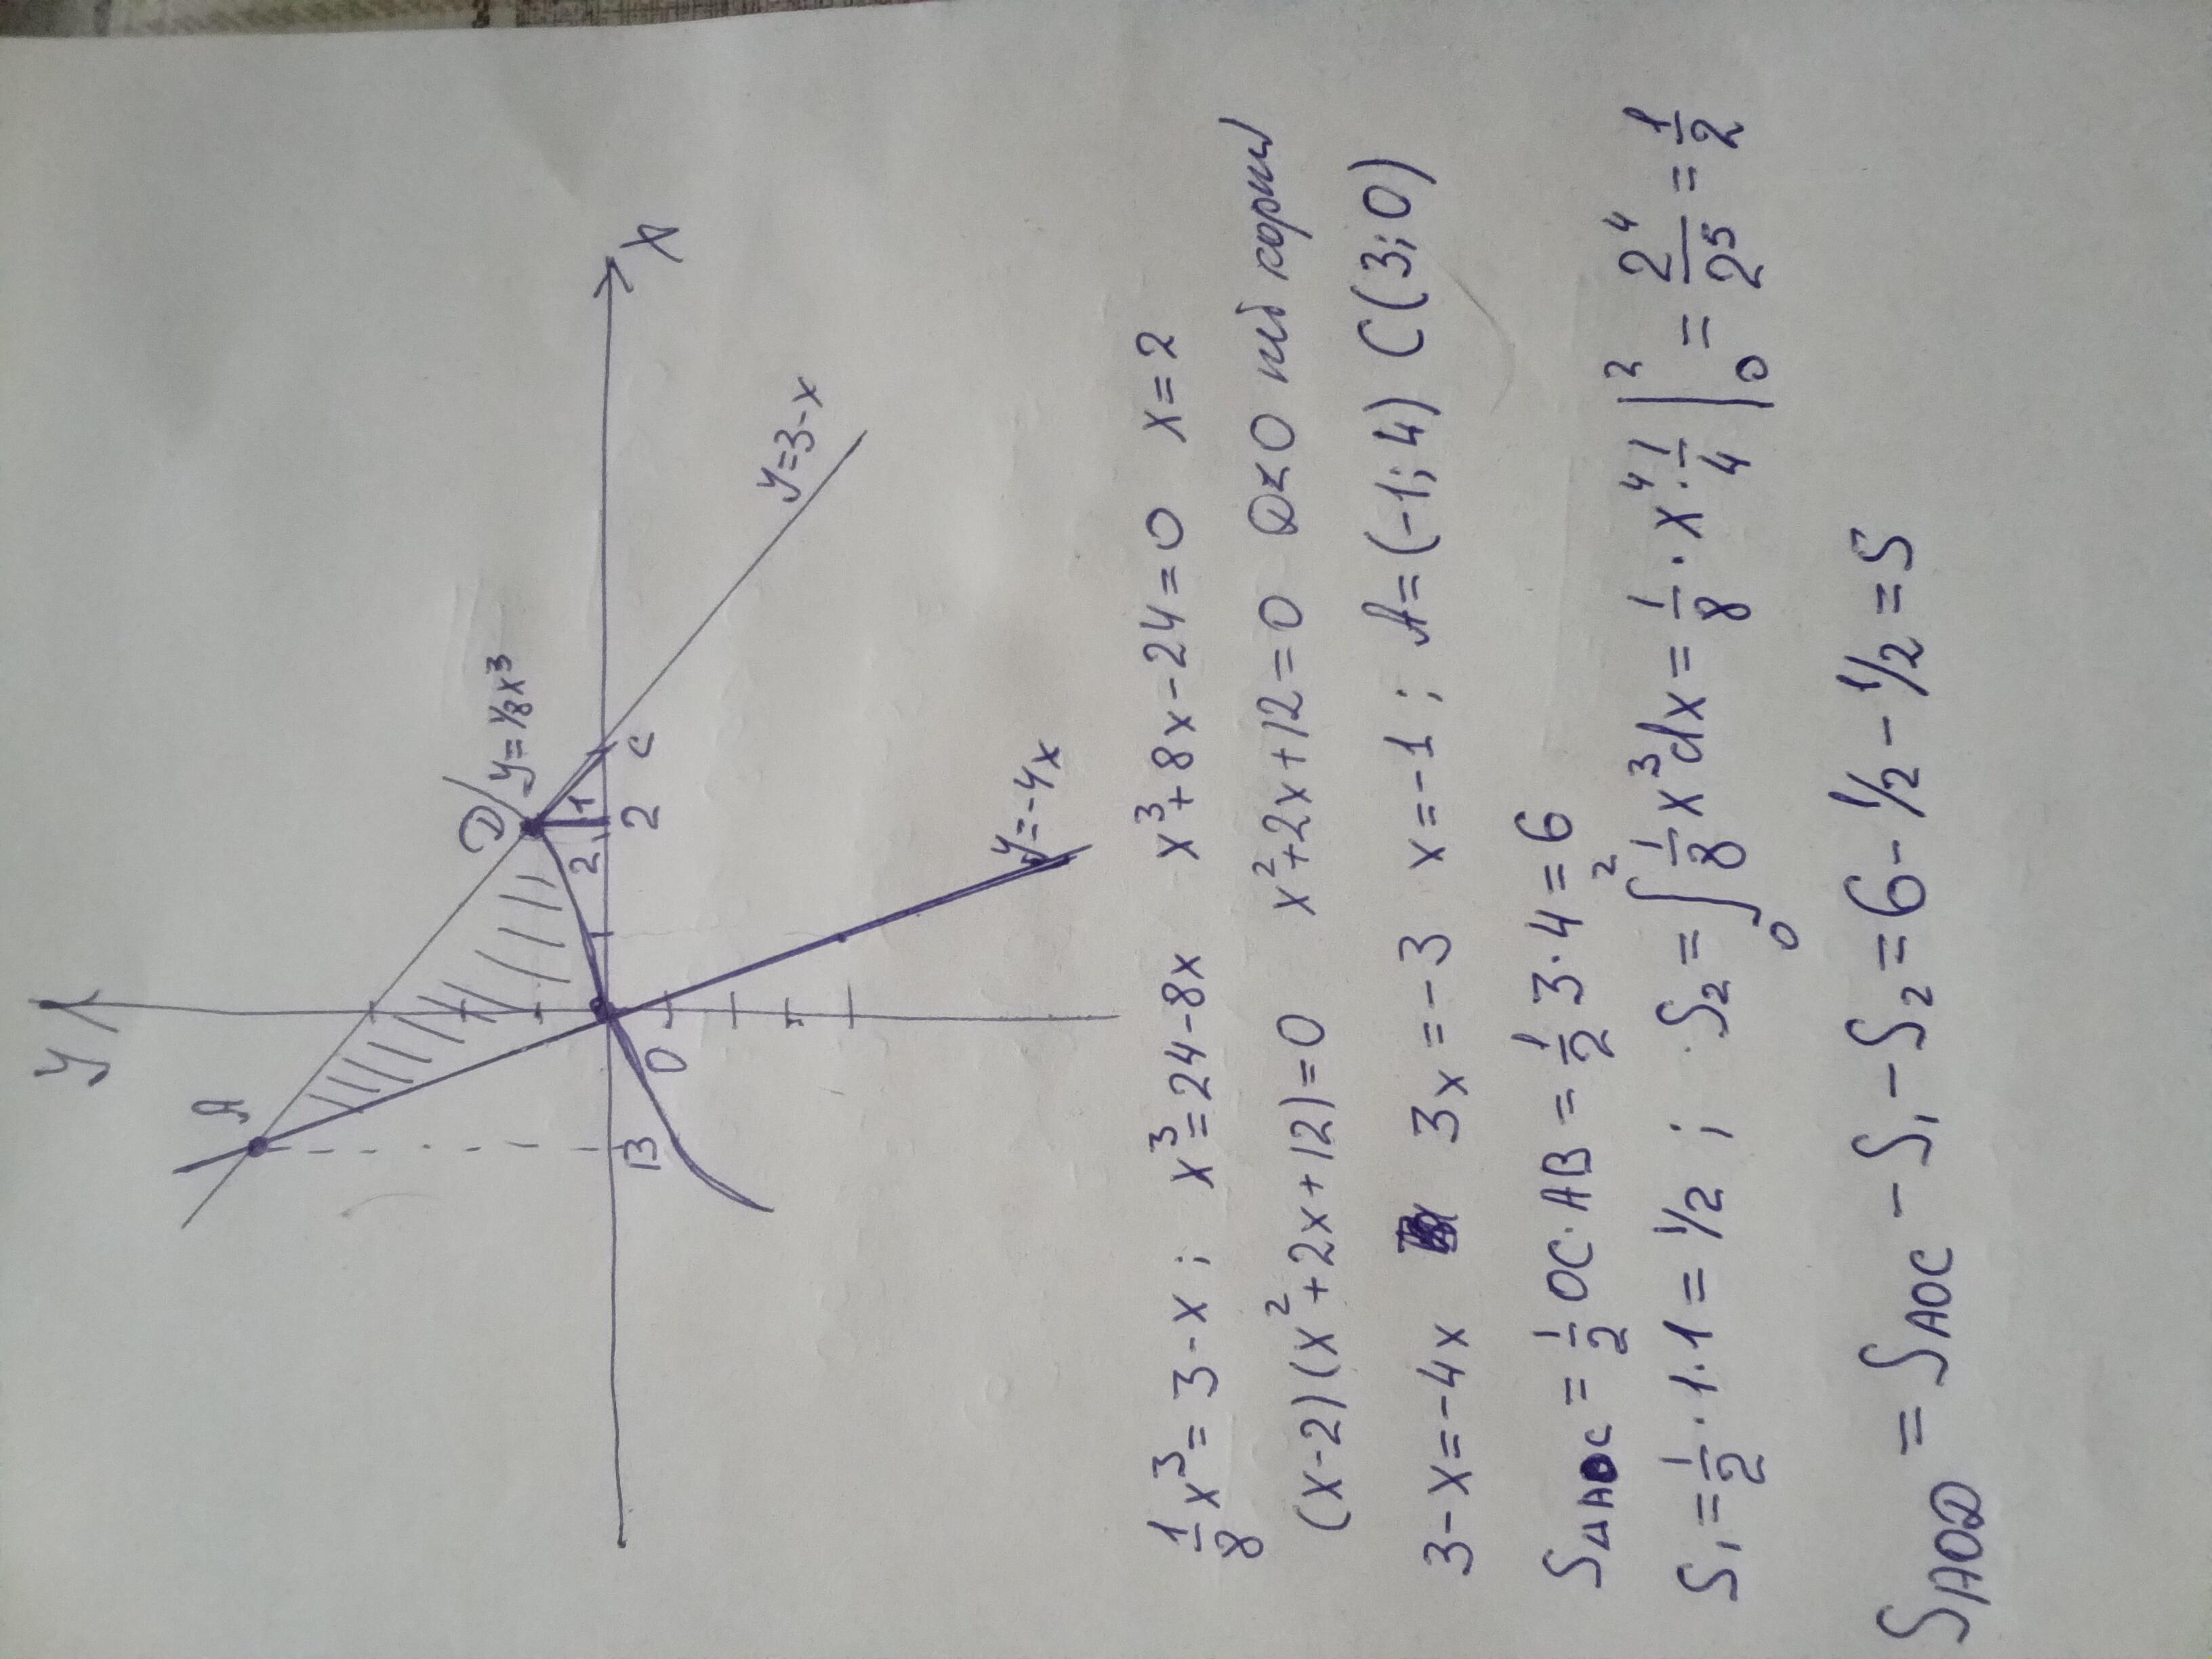 y
A
D
y=1/8x³
1
2
x
B
O
2
C
y=3-x
y=-4x
1/8x³=3-x; x³=24-8x x³+8x-24=0 x=2
(x-2)(x²+2x+12)=0 x²+2x+12=0 D<0 нет корней
3-x=-4x 3x=-3 x=-1; A=(-1;4) C(3;0)
S△AOC=1/2OC·AB=1/2 3·4=6
S₁=1/2·1·1=1/2; S₂=∫₀²1/8x³dx=1/8·x⁴·1/4|₀²=2⁴/2⁵=1/2
SAOD=SAOC-S₁-S₂=6-1/2-1/2=5